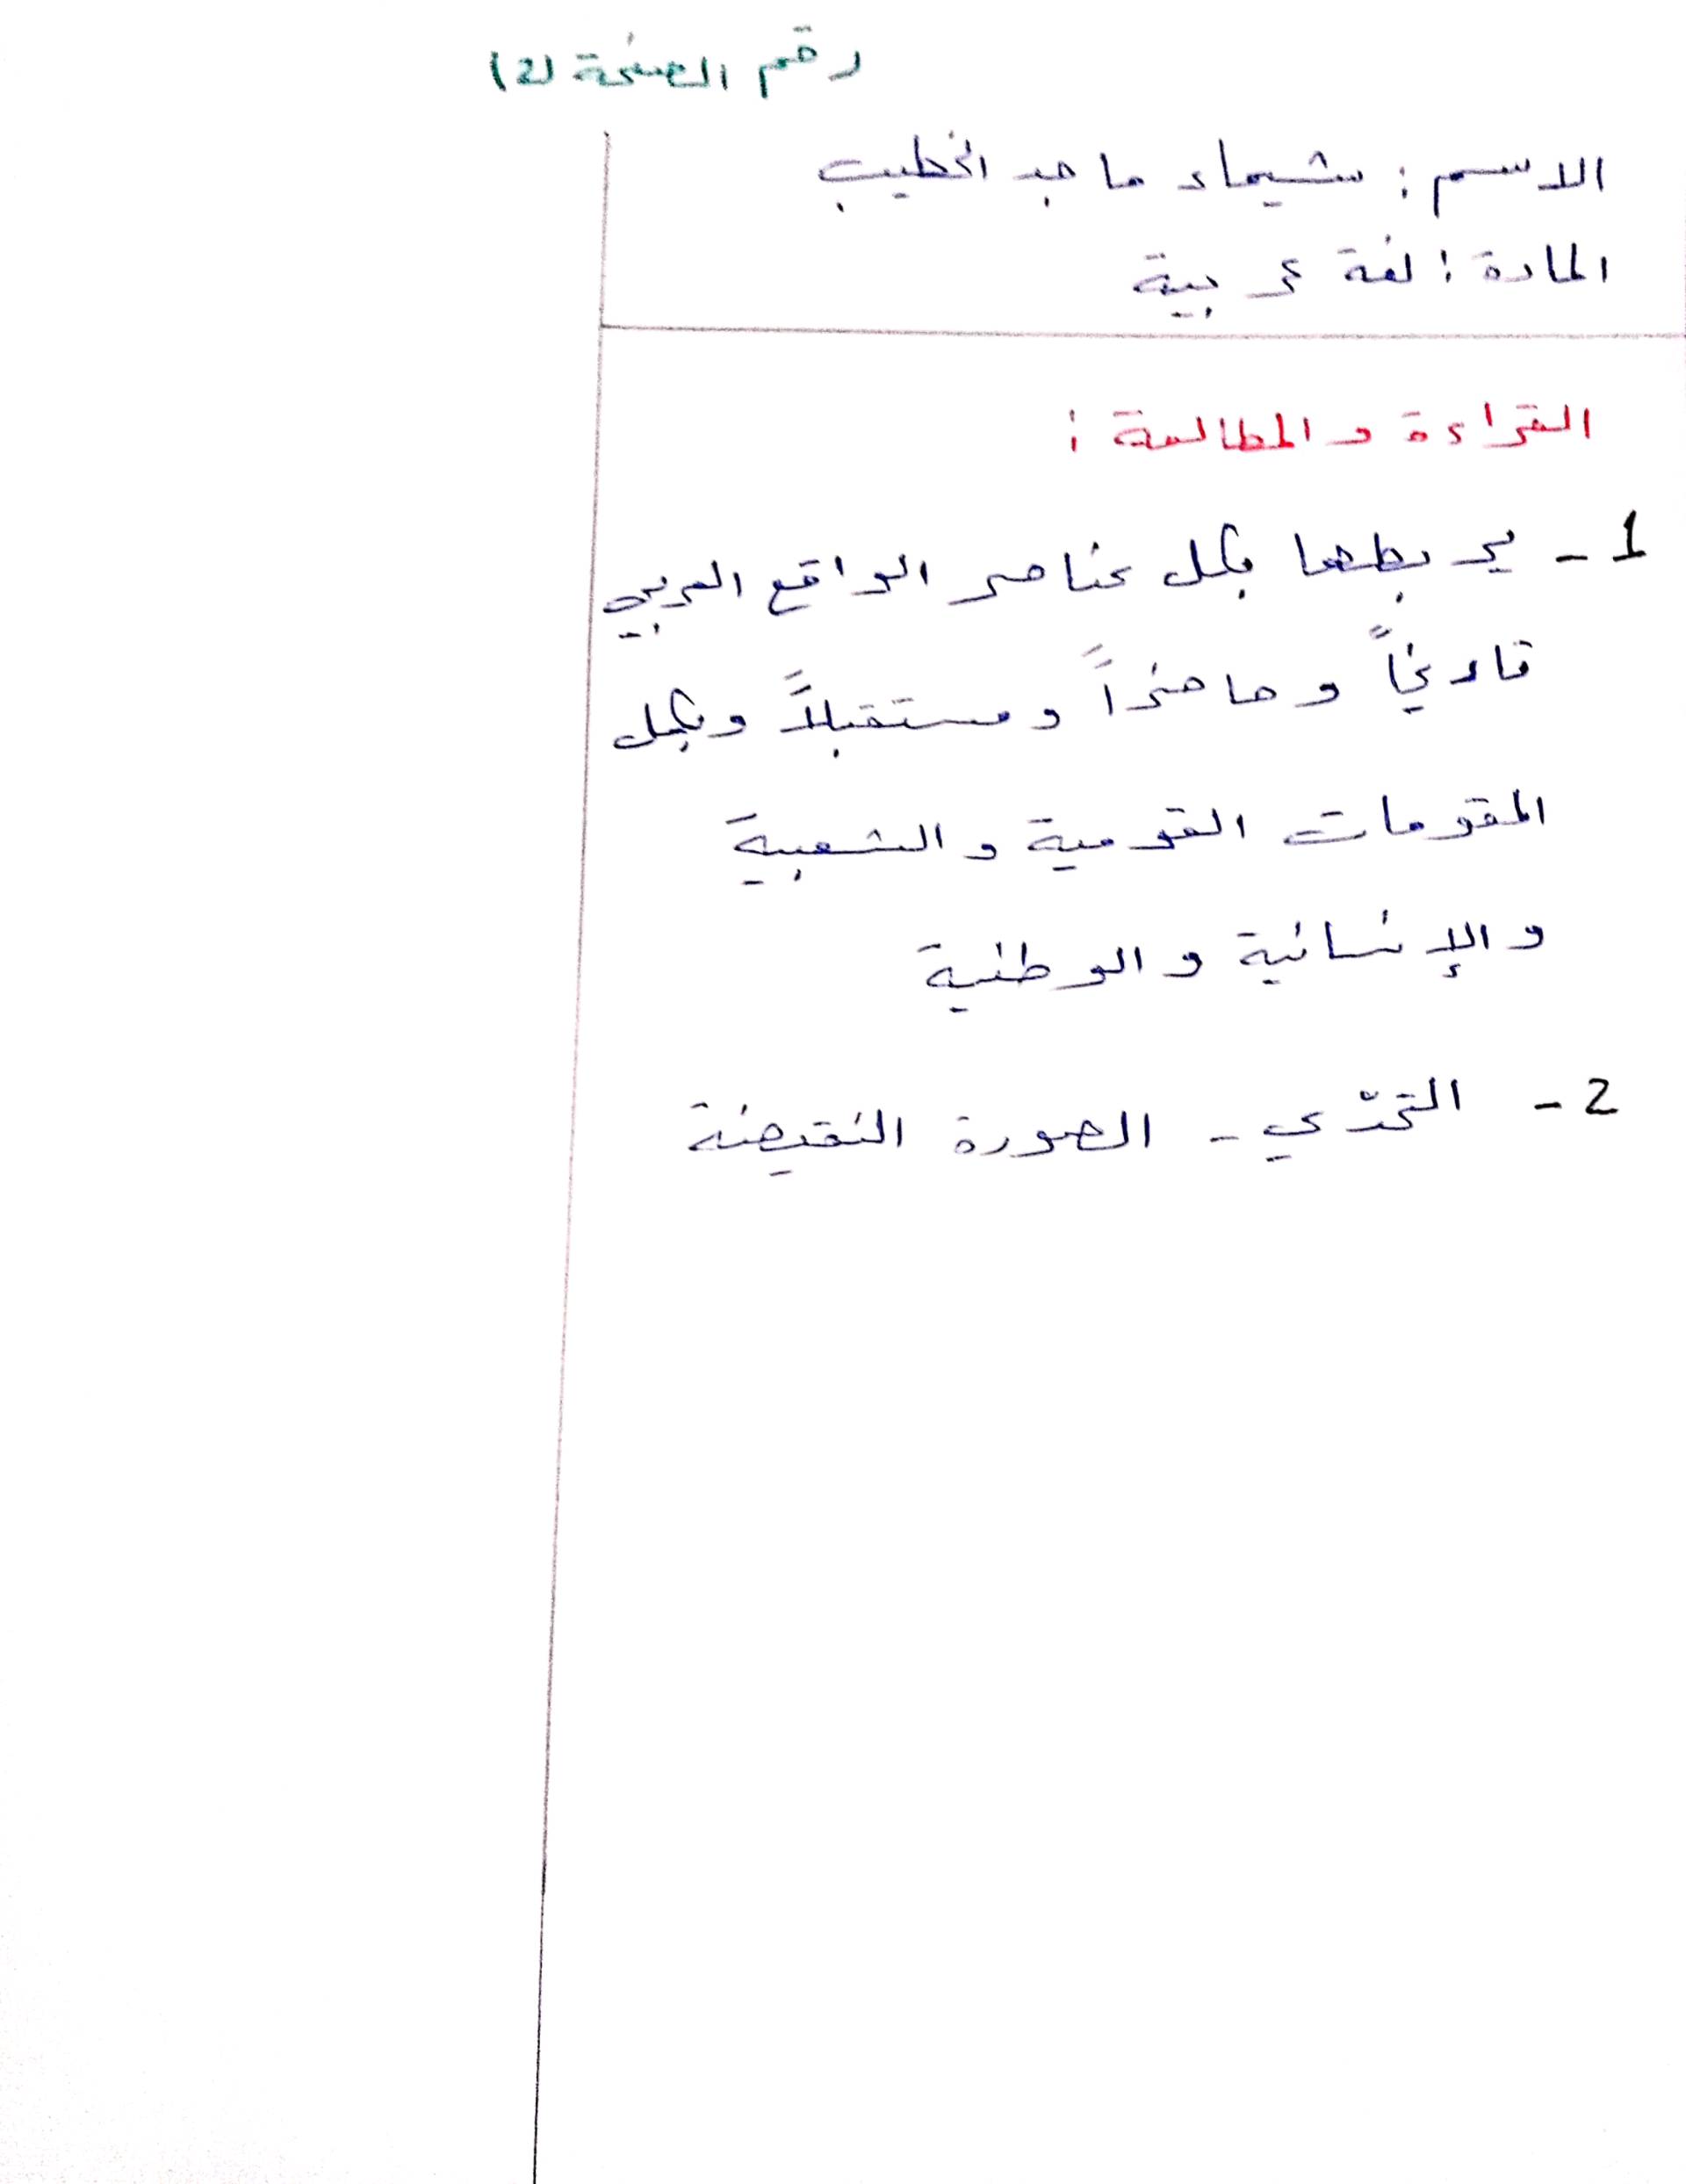 رقم الصفحة (2)
الاسم : شيماء ماجد الخطيب
المادة : لغة عربية
القراءة والمطالعة :
1 - يربطها بكل عناصر الواقع العربي
تاريخاً وحاضراً ومستقبلاً وبكل
المقومات القومية والشعبية
والإنسانية والوطنية
2 - التحدّي - الصورة النقيضة